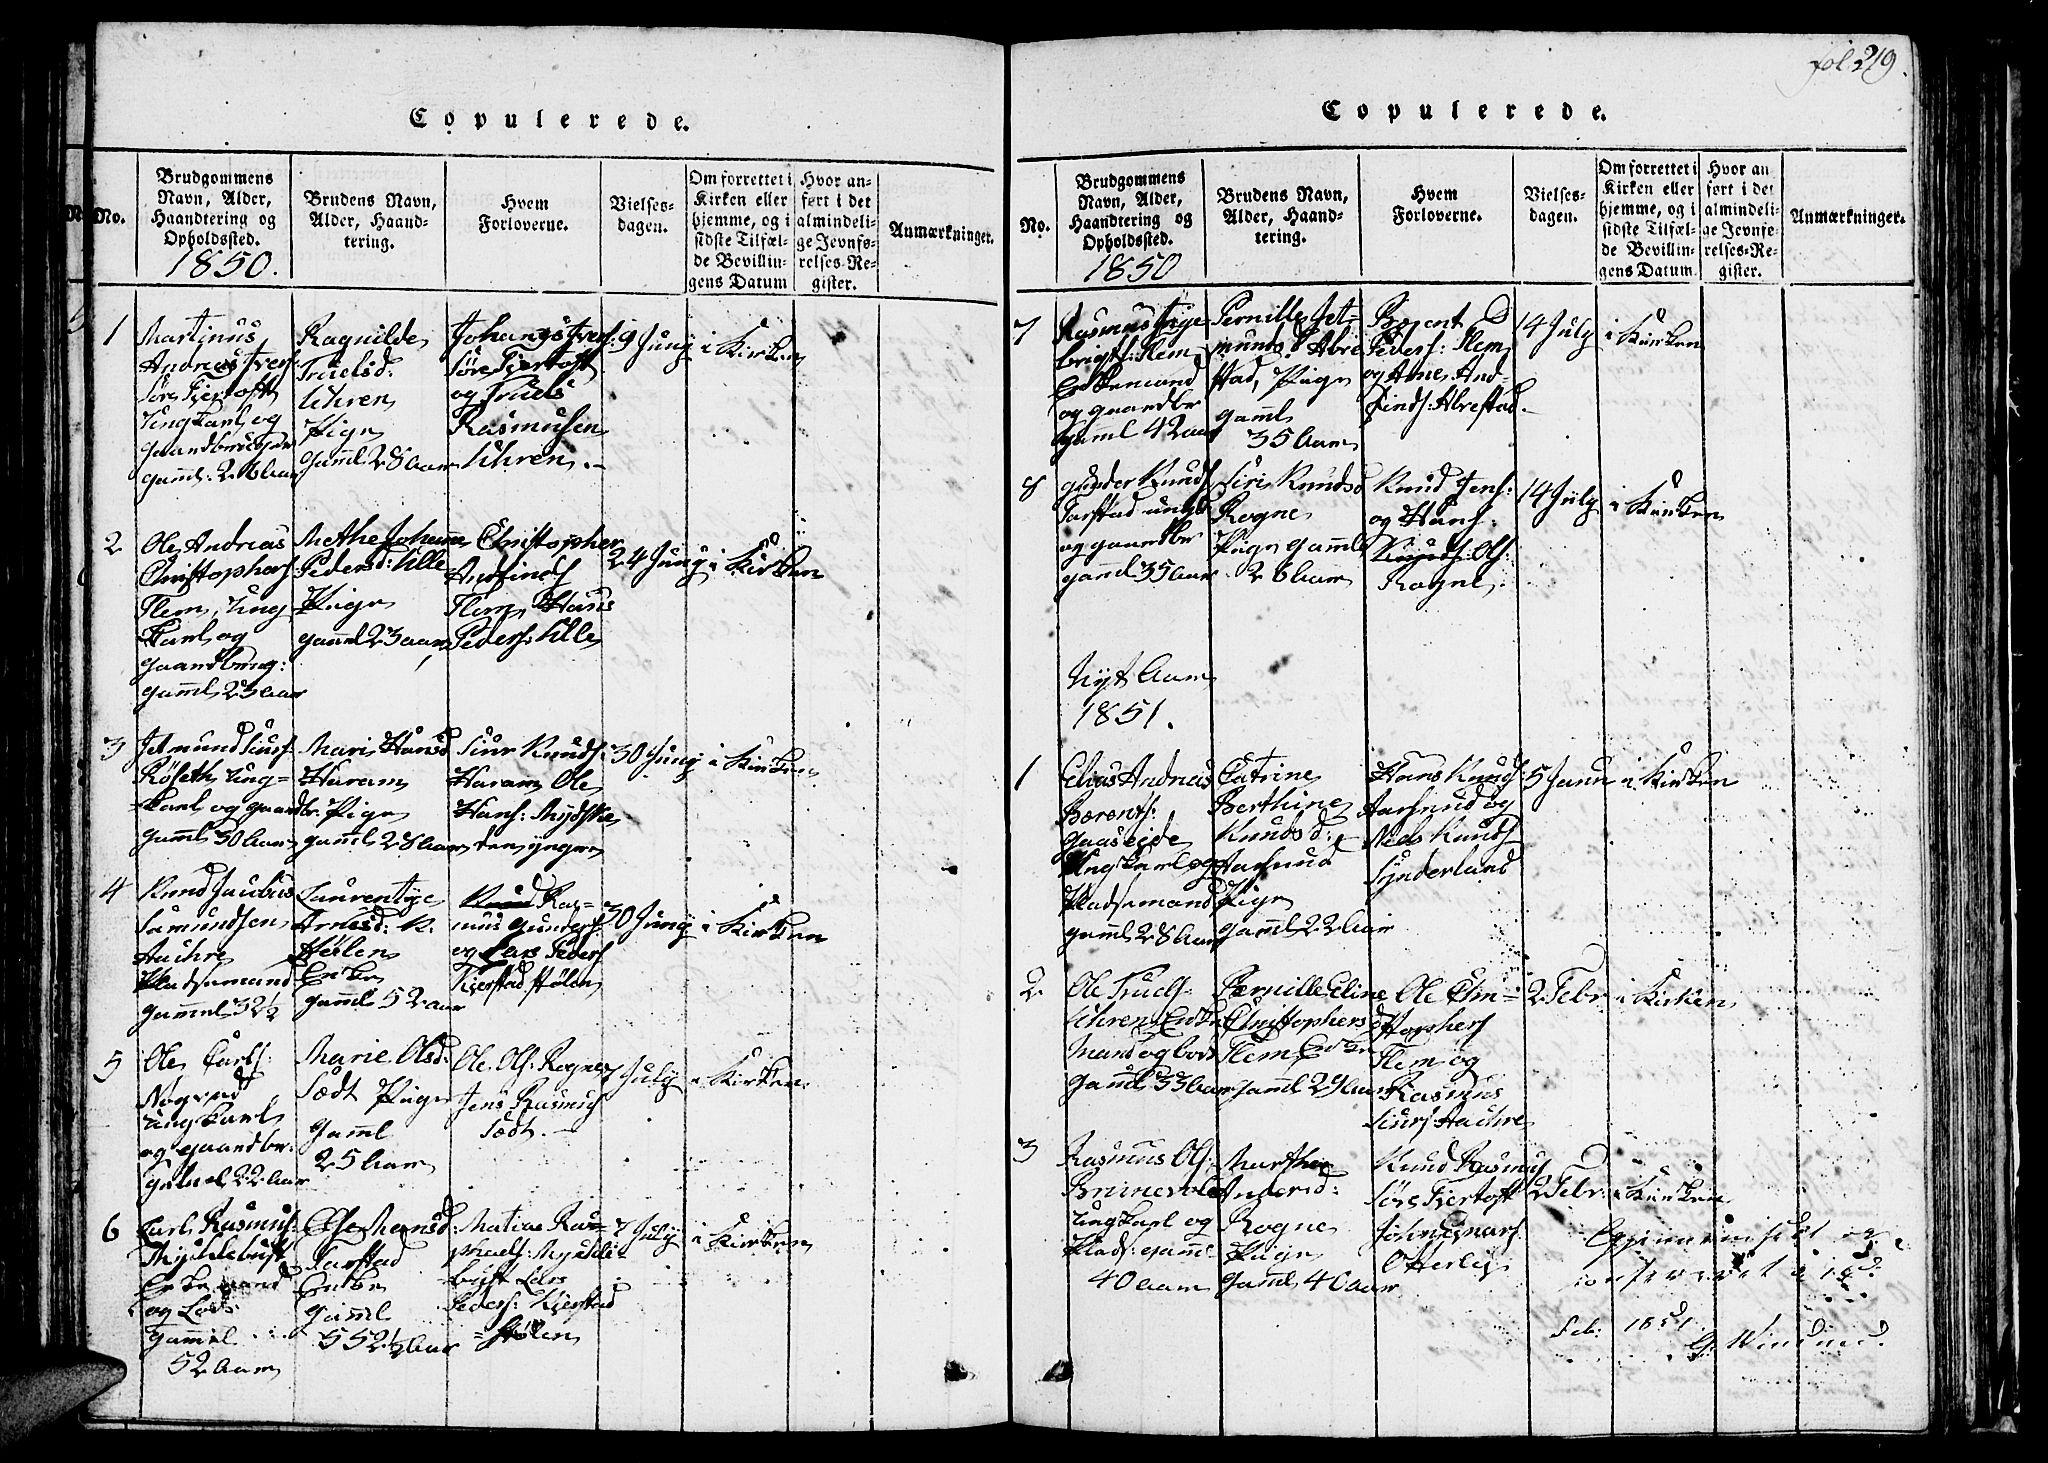 Copulerede.
No.
Brudgommens Navn, Alder, Haandtering og Opholdssted.
1850.
Brudens Navn, Alder, Haandtering.
Hvem Forloverne.
Vielsesdagen.
Om forrettet i Kirken eller hjemme, og i sidste Tilfælde Bevillingens Datum
Hvor anført i det almindelige Jevnførelses-Register.
Anmærkninger.
1
Martinus
Andreas Ivers:
Søre Fjertoft
Ungkarl og
Gaardbruger
gaml: 26 Aar
Ragnilde
Truelsd:
Uhren
Pige
gaml 28 Aar
Johannes Ivers:
Søre Fjertoft
og Truels
Rasmusen
Uhren.
9 Juny
i Kirken
2
Ole Andreas
Christophers:
Flem, Ung
karl og
gaardbrug:
gaml 23 Aar
Methe Johanne
Pedersd: Ulle
Pige
gaml 23 aar
Christopher
Andfinds
Flem Hans
Peders: Ulle
24 Juny
i Kirken
3
Jetmund Siurs
Røseth ung-
karl og gaardbr:
gaml 30 Aar
Mari Hansd
Haram
Pige
gaml 28 Aar
Siur Knuds:
Haram Ole
Hans: Mydske
den yngre
30 Juny
i Kirken
4
Knud Jacobus
Samundsen
Auchre
Pladsemand
gammel 32½
Laurentze
Arnesd: K:
Stølen
Enke
gaml 52 aar
Knud Ras=
mus Gunders
og Lars Peders
Kjerstad Stølen
30 Juny
i Kirken
5
Ole Carls:
Nogved
ungkarl
og gaardbr:
Gamel 22 Aar
Marie Olsd:
Sædt Pige
Gaml
25 Aar
Ole Ols: Rogne
Jens Rasmus
Sædt.
7 July
i Kirken
6
Carl Rasmus:
Myklebust
Enkemand
og Lods
gammel
52 Aar
Else Monsd:
Tarstad
Enke
Gaml
52½ Aar
Matias Ra=
phaels: Mykle=
bust Lars
Peders: Kjerstad
=Stølen
7 July
i Kirken
fol: 219.
Copulerede.
No.
Brudgommens Navn, Alder, Haandtering og Opholdssted.
1850
Brudens Navn, Alder, Haandtering.
Hvem Forloverne.
Vielsesdagen.
Om forrettet i Kirken eller hjemme, og i sidste Tilfælde Bevillingens Datum
Hvor anført i det almindelige Jevnførelses-Register.
Anmærkninger.
7
Rasmus Inge
brigts: Flem
Enkemand
og gaardbr
gaml 42 aar
Pernille Jet=
munds D Abel
stad, Pige
gaml
35 Aar
Bærent
Peders: Flem
og Arne And=
finds: Abelstad.
14 July
i Kirken
8
Gunder Knuds
Tarstad ungk
og gaardbr
gaml 35 Aar
Siri Knudsd
Rogne
Pige gaml
26 Aar
Knud Jens:
og Hans
Knuds Ols:
Rogne.
14 July
i Kirken
Nyt Aar
1851.
1
Elias Andreas
Berents:
Gaaseide
Ungkarl og
Pladsemand
gaml 28 Aar
Catrine
Berthine
Knudsd:
Aarsund
Pige
gaml 22 Aar
Hans Knuds:
Aarsund og
Nels Knuds
Synderland
5 Janu
i Kirken
2
Ole Truels=
Uhren Enke
mand og bor
Gaml 33 Aar
Pernille Eline
Christophersd
Flem, Enke
gaml 29 Aar
Ole Chri=
stophers
Flem og
Rasmus
Siurs Hauhre
2 Febr
i Kirken
3
Rasmus Ols:
Brunevole
ungkarl og
Plads: gaml
40 aar
Marthe
Andersd:
Rogne
Pige
gaml 40 aar
Knud Rasmus
Søre Fjertoft
John Einars
Otterlei
2 Febr:
i Kirken
Gjennemseet og
conferveret i
Feb: 1851.